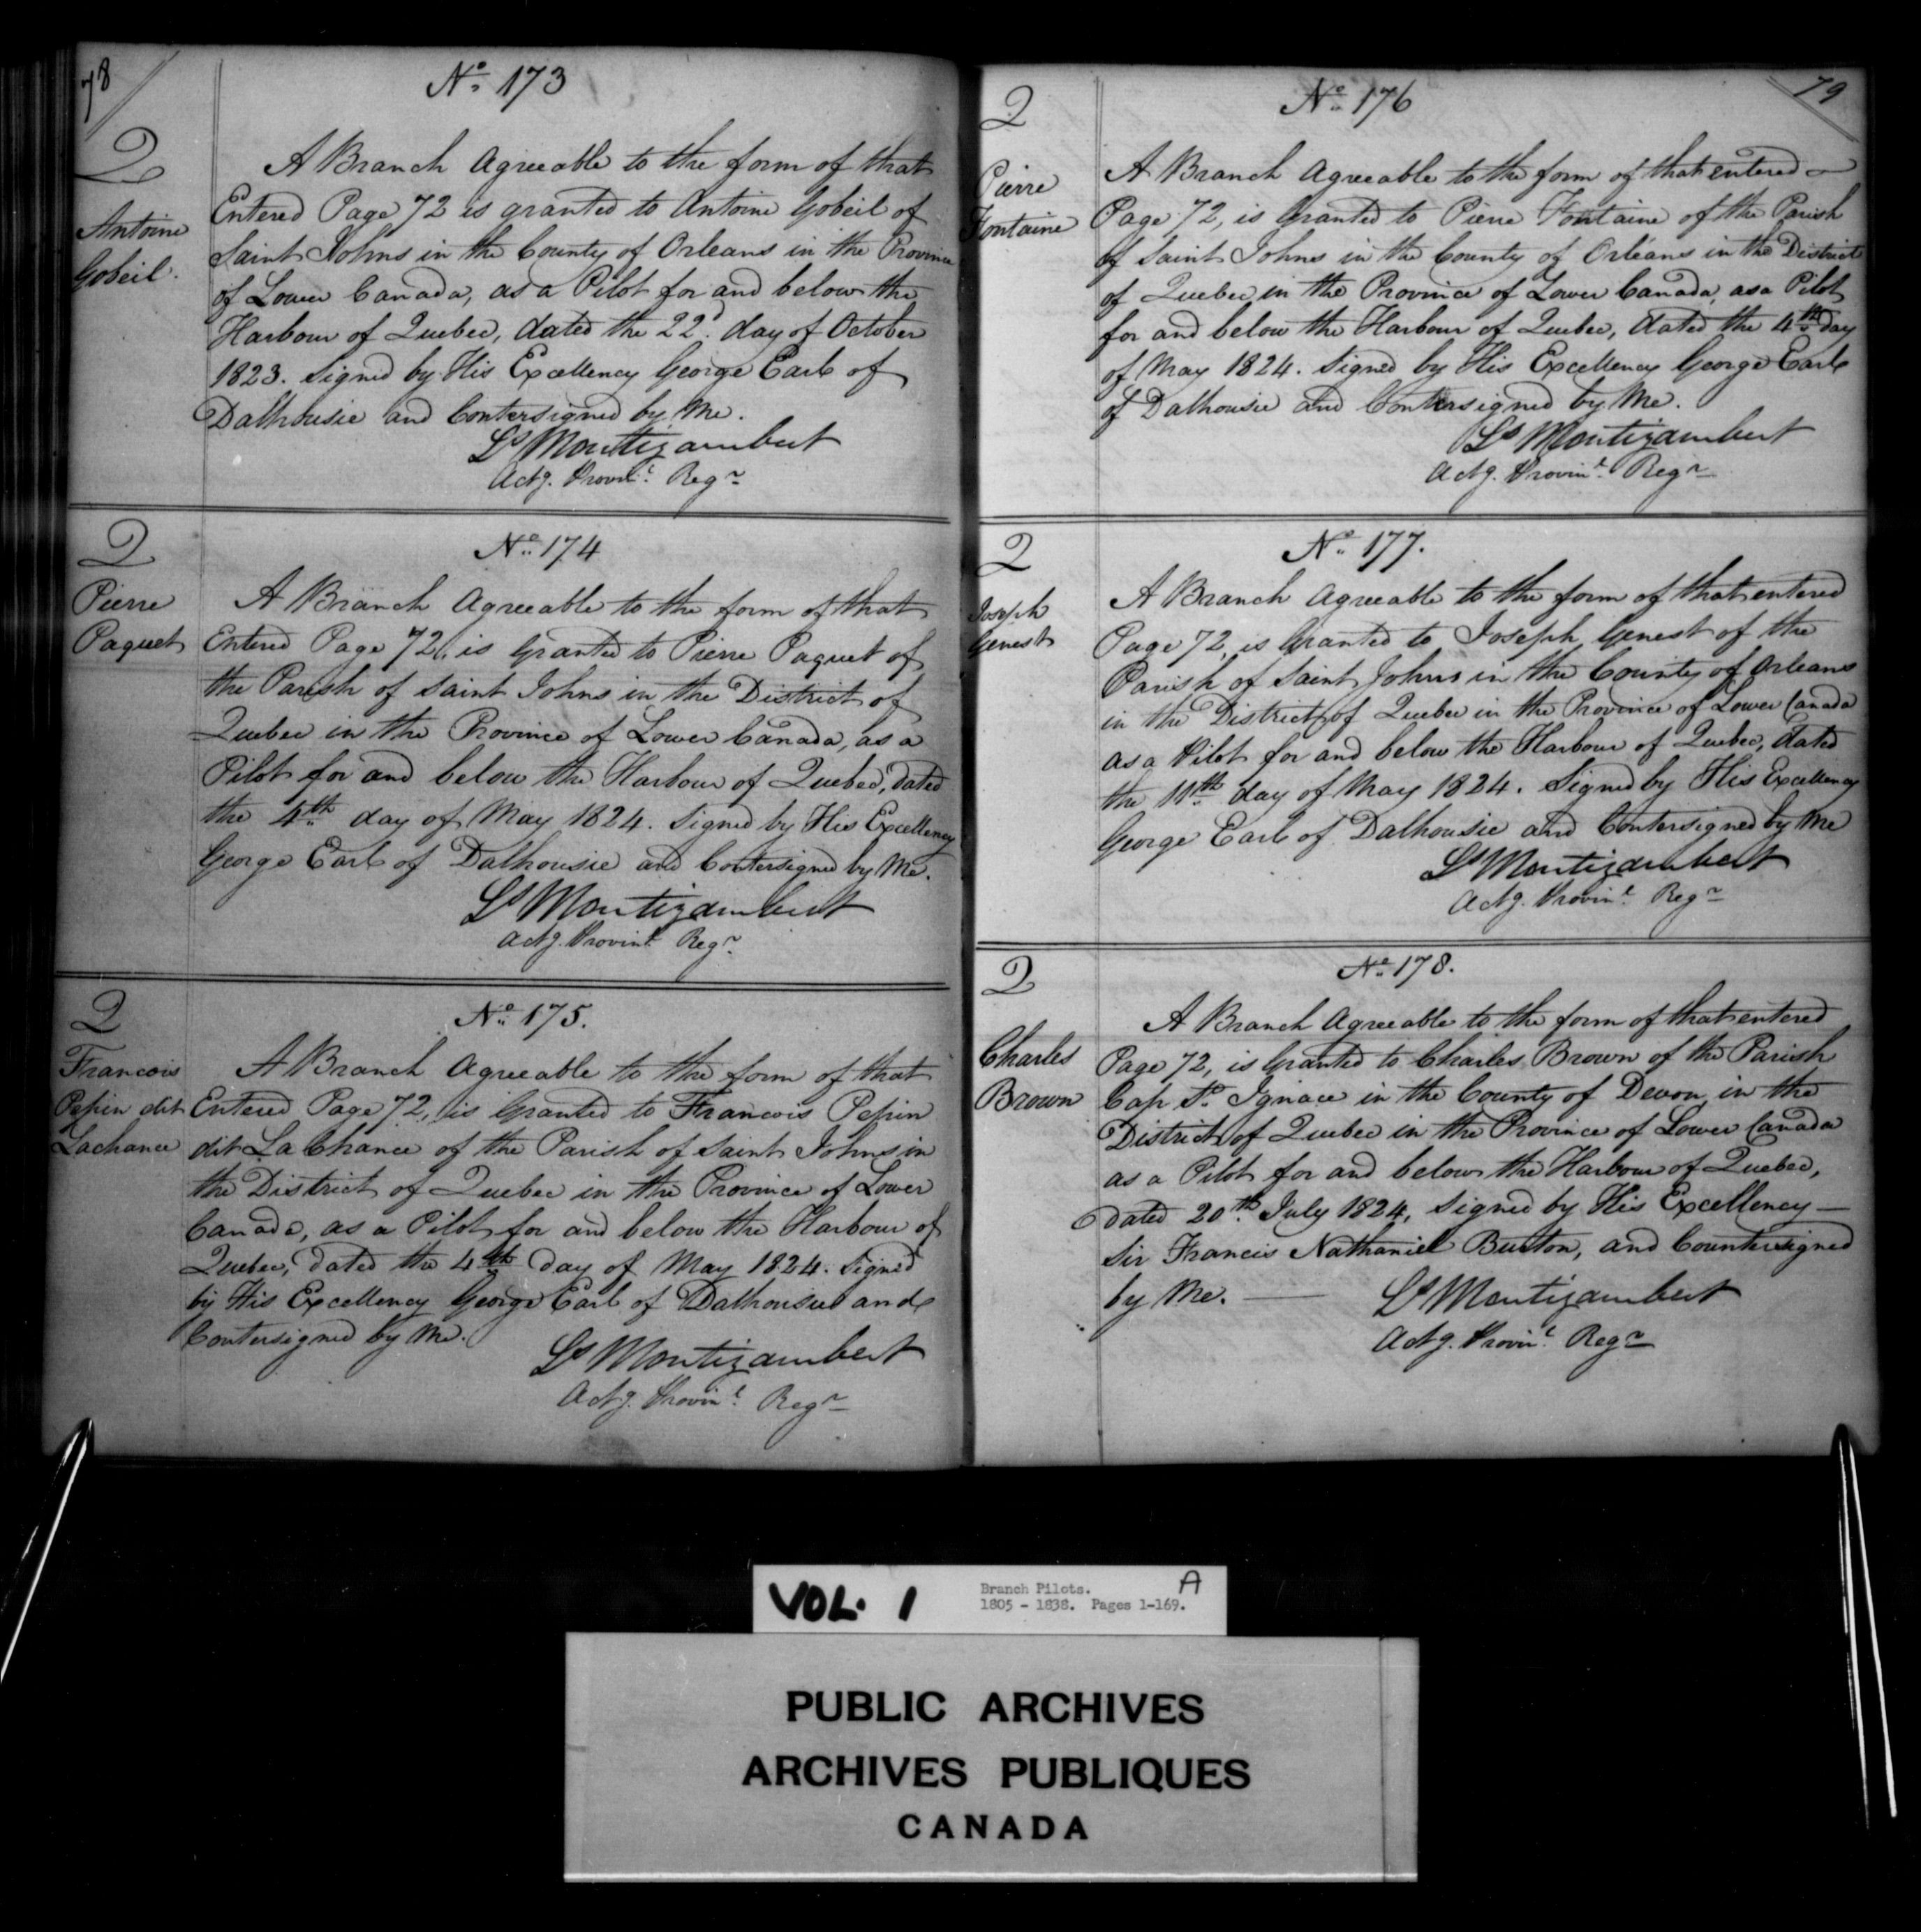 78
No. 173
2
Antoine
Gobeil.
A Branch Agreeable to the form of that
Entered Page 72 is granted to Antoine Gobeil of
Saint Johns in the County of Orleans in the Province
of Lower Canada, as a Pilot for and below the
Harbour of Quebec, dated the 22d. day of October
1823. Signed by His Excellency George Earl of
Dalhousie and Contersigned by Me.
Ls Montizambert
Actg. Provinl. Regr
2
No. 174
Pierre
Paquet
A Branch Agreeable to the form of that
Entered Page 72, is Granted to Pierre Paquet of
the Parish of Saint Johns in the District of
Quebec in the Province of Lower Canada, as a
Pilot for and below the Harbour of Quebec, dated
the 4th day of May 1824. Signed by His Excellency
George Earl of Dalhousie and Contersigned by Me.
Ls Montizambert
Actg. Provinl. Regr.
2
No. 175.
Francois
Pepin dit
Lachance
A Branch Agreeable to the form of that
Entered Page 72, is Granted to Francois Pepin
dit La Chance of the Parish of Saint Johns in
the District of Quebec in the Province of Lower
Canada, as a Pilot for and below the Harbour of
Quebec, dated the 4th day of May 1824. Signed
by His Excellency George Earl of Dalhousie and
Contersigned by Me.
Ls Montizambert
Actg. Provinl. Regr
79
2
No. 176
Pierre
Fontaine
A Branch Agreeable to the form of that entered
Page 72, is Granted to Pierre Fontaine of the Parish
of Saint Johns in the County of Orleans in the District
of Quebec in the Province of Lower Canada, as a Pilot
for and below the Harbour of Quebec, dated the 4th day
of May 1824. Signed by His Excellency George Earl
of Dalhousie and Contersigned by Me.
Ls Montizambert
Actg. Provinl. Regr
2
No. 177.
Joseph
Genest
A Branch Agreeable to the form of that entered
Page 72, is Granted to Joseph Genest of the
Parish of Saint Johns in the County of Orleans
in the District of Quebec in the Province of Lower Canada
as a Pilot for and below the Harbour of Quebec, dated
the 11th day of May 1824. Signed by His Excellency
George Earl of Dalhousie and Contersigned by Me
Ls Montizambert
Actg. Provinl. Regr
2
No. 178.
Charles
Brown
A Branch Agreeable to the form of that entered
Page 72, is Granted to Charles Brown of the Parish
Cap St. Ignace in the County of Devon in the
District of Quebec in the Province of Lower Canada
as a Pilot for and below the Harbour of Quebec,
dated 20th. July 1824, Signed by His Excellency —
Sir Francis Nathaniel Burton, and Countersigned
by Me. —
Ls Montizambert
Actg. Provinl. Regr
VOL. 1
Branch Pilots. A
1805 - 1838. Pages 1-169.
PUBLIC ARCHIVES
ARCHIVES PUBLIQUES
CANADA